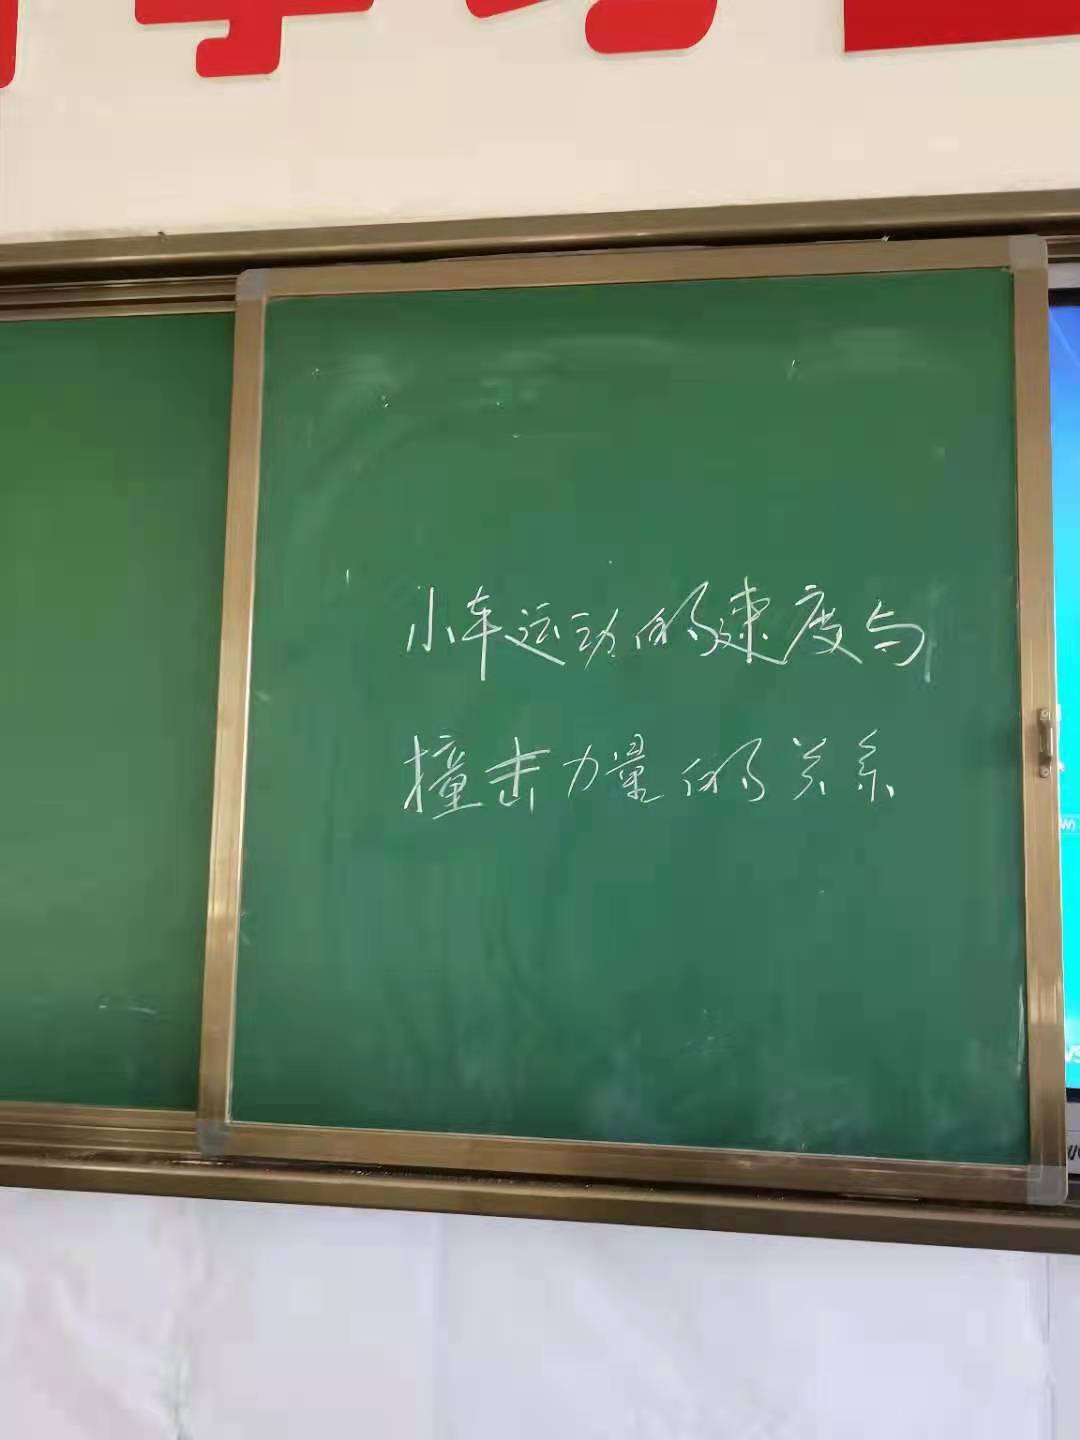 小车运动的速度与
撞击力量的关系